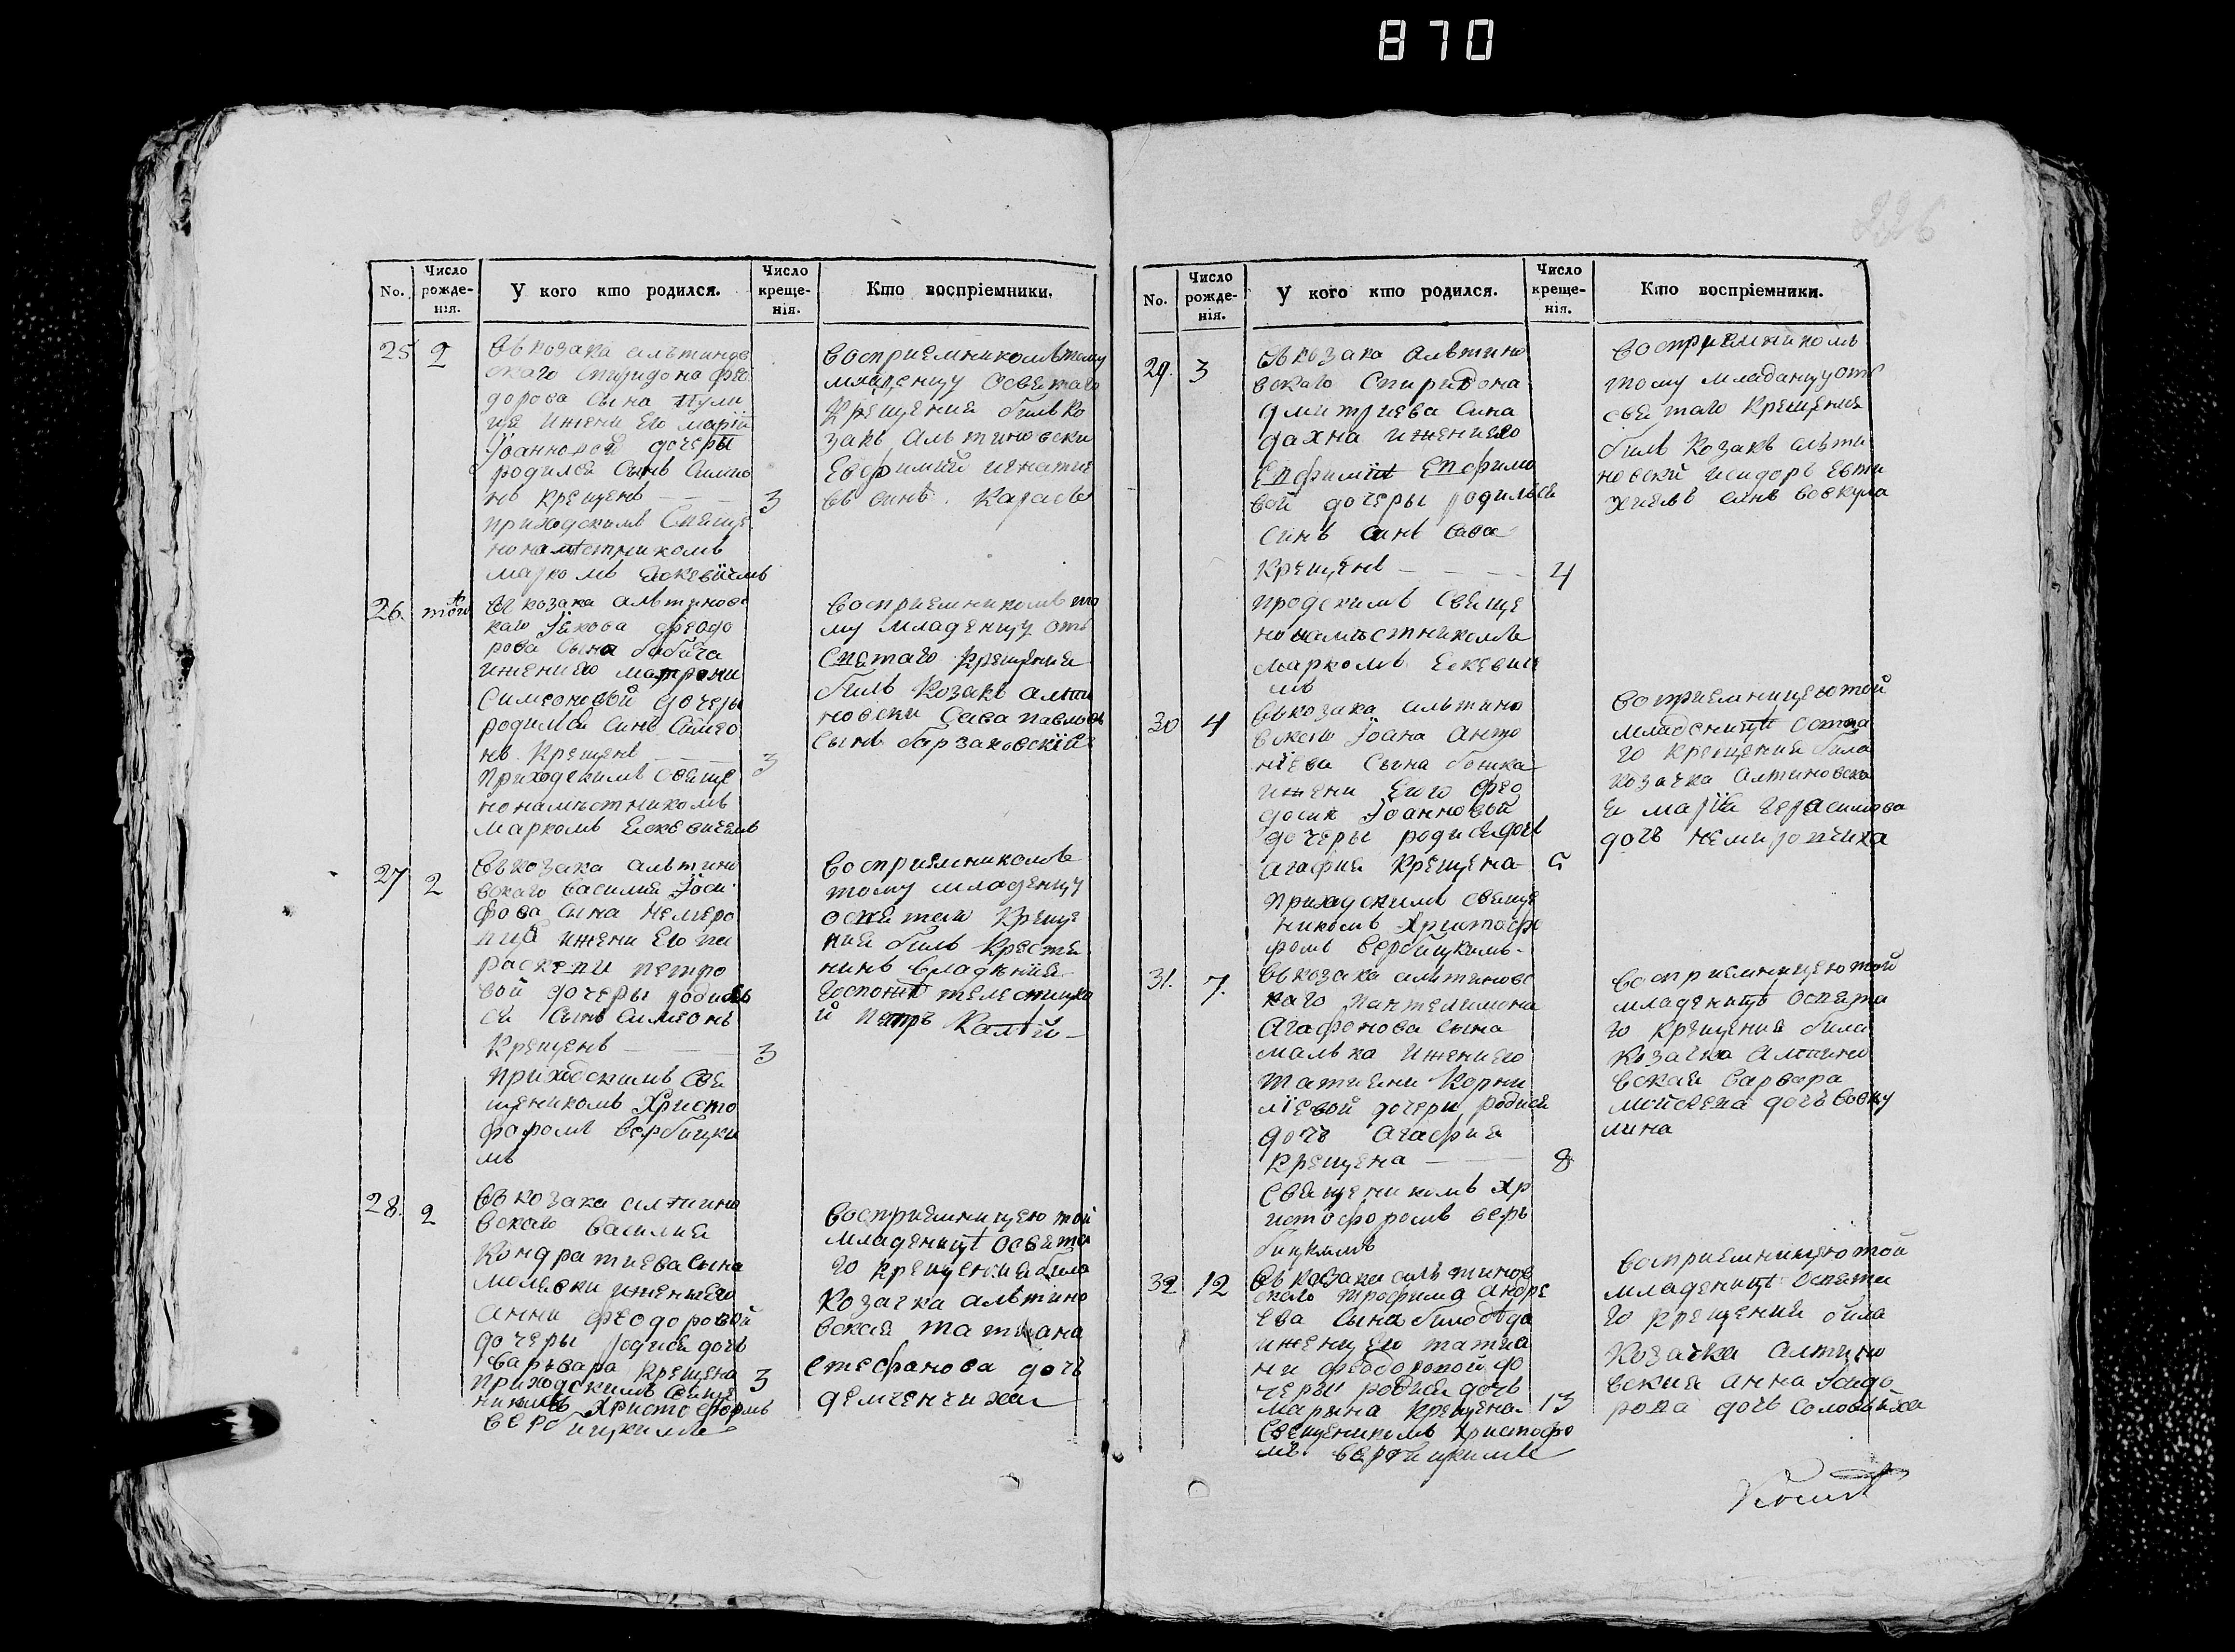 870
226
No.
Число рожде-нія.
У кого кто родился.
Число креще-нія.
Кто воспріемники.
25 2
Овкозака алтиновс
скаго Спиридона фео
дорова сына Пули
ця ижени Его марїи
Їоанновой дочеры
родился Сынъ Симио
нъ крещенъ — — — 3
приходскимъ Свяще
нонамѣстникомъ
маркомъ Ескевїчемъ
восприемникомъ тому
младенцу Освятаго
Крещения билъ ко
закъ Алтиновски
Евфимїй игнатие
въ синъ Карасъ
26. того
Овкозака алтиновс
каго Їякова феодо
рова Сына бабича
ижени его матрони
Симеоновой дочеры
родился Синъ Симео
нъ Крещенъ — — 3
приходскимъ Свяще
нонамѣстникомъ
маркомъ Ескевичемъ
восприемникомъ то
му младенцу отъ
Святаго крещения
билъ Козакъ алти
новски Сава павловъ
сынъ барзаковскїй
27 2
Овкозака алтино
вскаго василия Їоси
фова сына немеро
ици ижени Его па
раскеви петро
вой дочеры родилъ
ся Сынъ Симеонъ
Крещенъ — — 3
приходскимъ Свя
щеникомъ Христо
форомъ вербицки
мъ
восприемникомъ
тому младенцу
освятаго Креще
ния билъ Крестя
нинъ владѣния
Госпожѣ телесницко
й петръ Калїй
28. 2
Овкозака алтино
вскаго василия
Кондратиева сына
молявки ижени его
анни феодоровой
дочеры родися дочъ
варъвара крещена 3
приходскимъ свяще
никомъ Христофоромъ
вербицкимъ
восприемницею той
младеницѣ освята
го крещения била
козачка алтино
вская татияна
стефанова дочъ
демченчиха
No.
Число рожде-нія.
У кого кто родился.
Число креще-нія.
Кто воспріемники.
29. 3
Овкозака алтино
вскаго Спиридона
дмитриева Сина
дахна ижени его
Епфимїи Епфимо
вой дочеры родилься
синъ синъ Сава
Крещенъ — — — 4
продскимъ Свяще
нонамѣстникомъ
маркомъ Ескевиче
мъ
восприемникомъ
тому младанцу отъ
святаго крещения
билъ козакъ алти
новскй исидоръ евти
хиевъ синъ вовкула
30 4
Овкозака алтино
вскаго Їоана Анто
нїева Сына бошка
ижени Его Фео
досии Їоанновой
дочеры родися дочъ
агафия крещена 5
приходскимъ свяще
никомъ Христофо
ромъ вербицкимъ
восприемницею той
младеницѣ освята
го крещения била
козачка алтиновска
я марїя герасимова
дочъ немиропчиха
31. 7.
Овкозака алтиновс
каго Пантелимона
Агафонова сына
малька ижени его
татияни Корни
лїевой дочери родися
дочъ Агафия
крещена — — 8
Священикомъ Хр
истофоромъ верь
бицкимъ
восприемницею той
младеницѣ освята
го крещения била
козачка Алтино
вская варвара
мойсеева дочъ вовку
лина
32 12
Овкозака алтинов
скаго трофима андре
ева сына
ижени его татиа
ни феодоровой до
черы родися дочъ
марына крещена 13
Священикомъ христофо
мъ вербицкимъ
восприемницею той
младеницѣ освята
го крещения била
козачка алтино
вския анна Їсидо
рова дочъ соловьиха